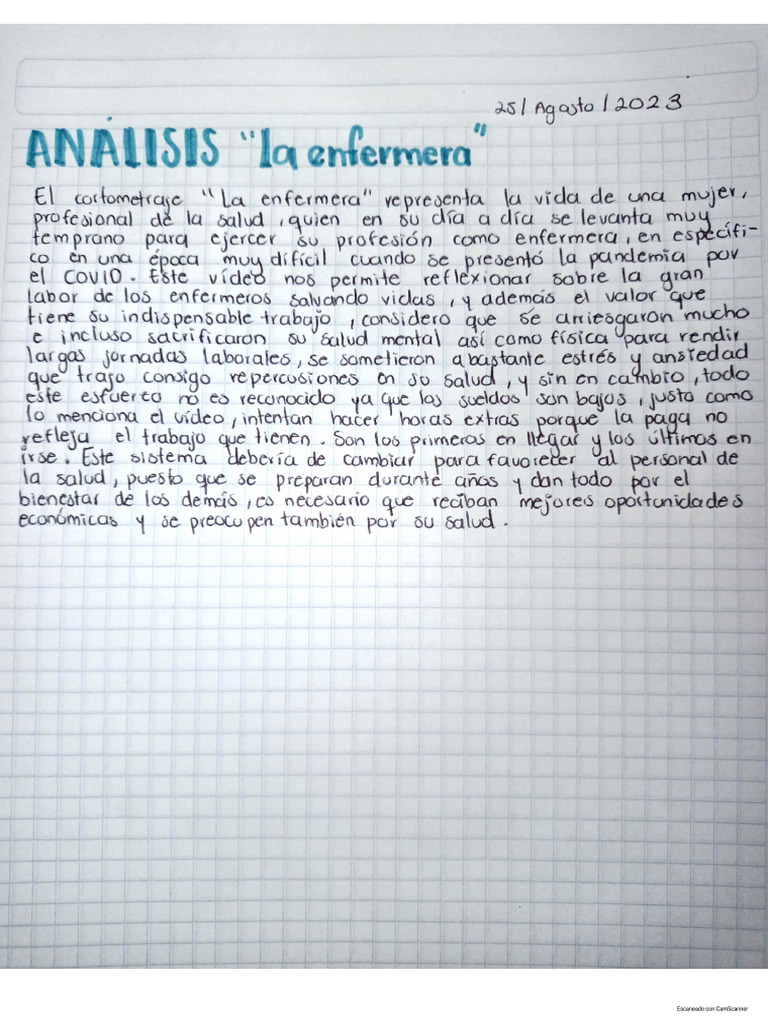 25/Agosto/2023
ANÁLISIS "la enfermera"
El cortometraje "La enfermera" representa la vida de una mujer,
profesional de la salud, quien en su día a día se levanta muy
temprano para ejercer su profesión como enfermera, en específi-
co en una época muy difícil cuando se presentó la pandemia por
el COVID. Este vídeo nos permite reflexionar sobre la gran
labor de los enfermeros salvando vidas, y además el valor que
tiene su indispensable trabajo, considero que se arriesgaron mucho
e incluso sacrificaron su salud mental así como física para rendir
largas jornadas laborales, se sometieron a bastante estrés y ansiedad
que trajo consigo repercusiones en su salud, y sin en cambio, todo
este esfuerzo no es reconocido ya que los sueldos son bajos, justo como
lo menciona el vídeo, intentan hacer horas extras porque la paga no
refleja el trabajo que tienen. Son los primeros en llegar y los últimos en
irse. Este sistema debería de cambiar para favorecer al personal de
la salud, puesto que se preparan durante años y dan todo por el
bienestar de los demás, es necesario que reciban mejores oportunidades
económicas y se preocupen también por su salud.
Escaneado con CamScanner